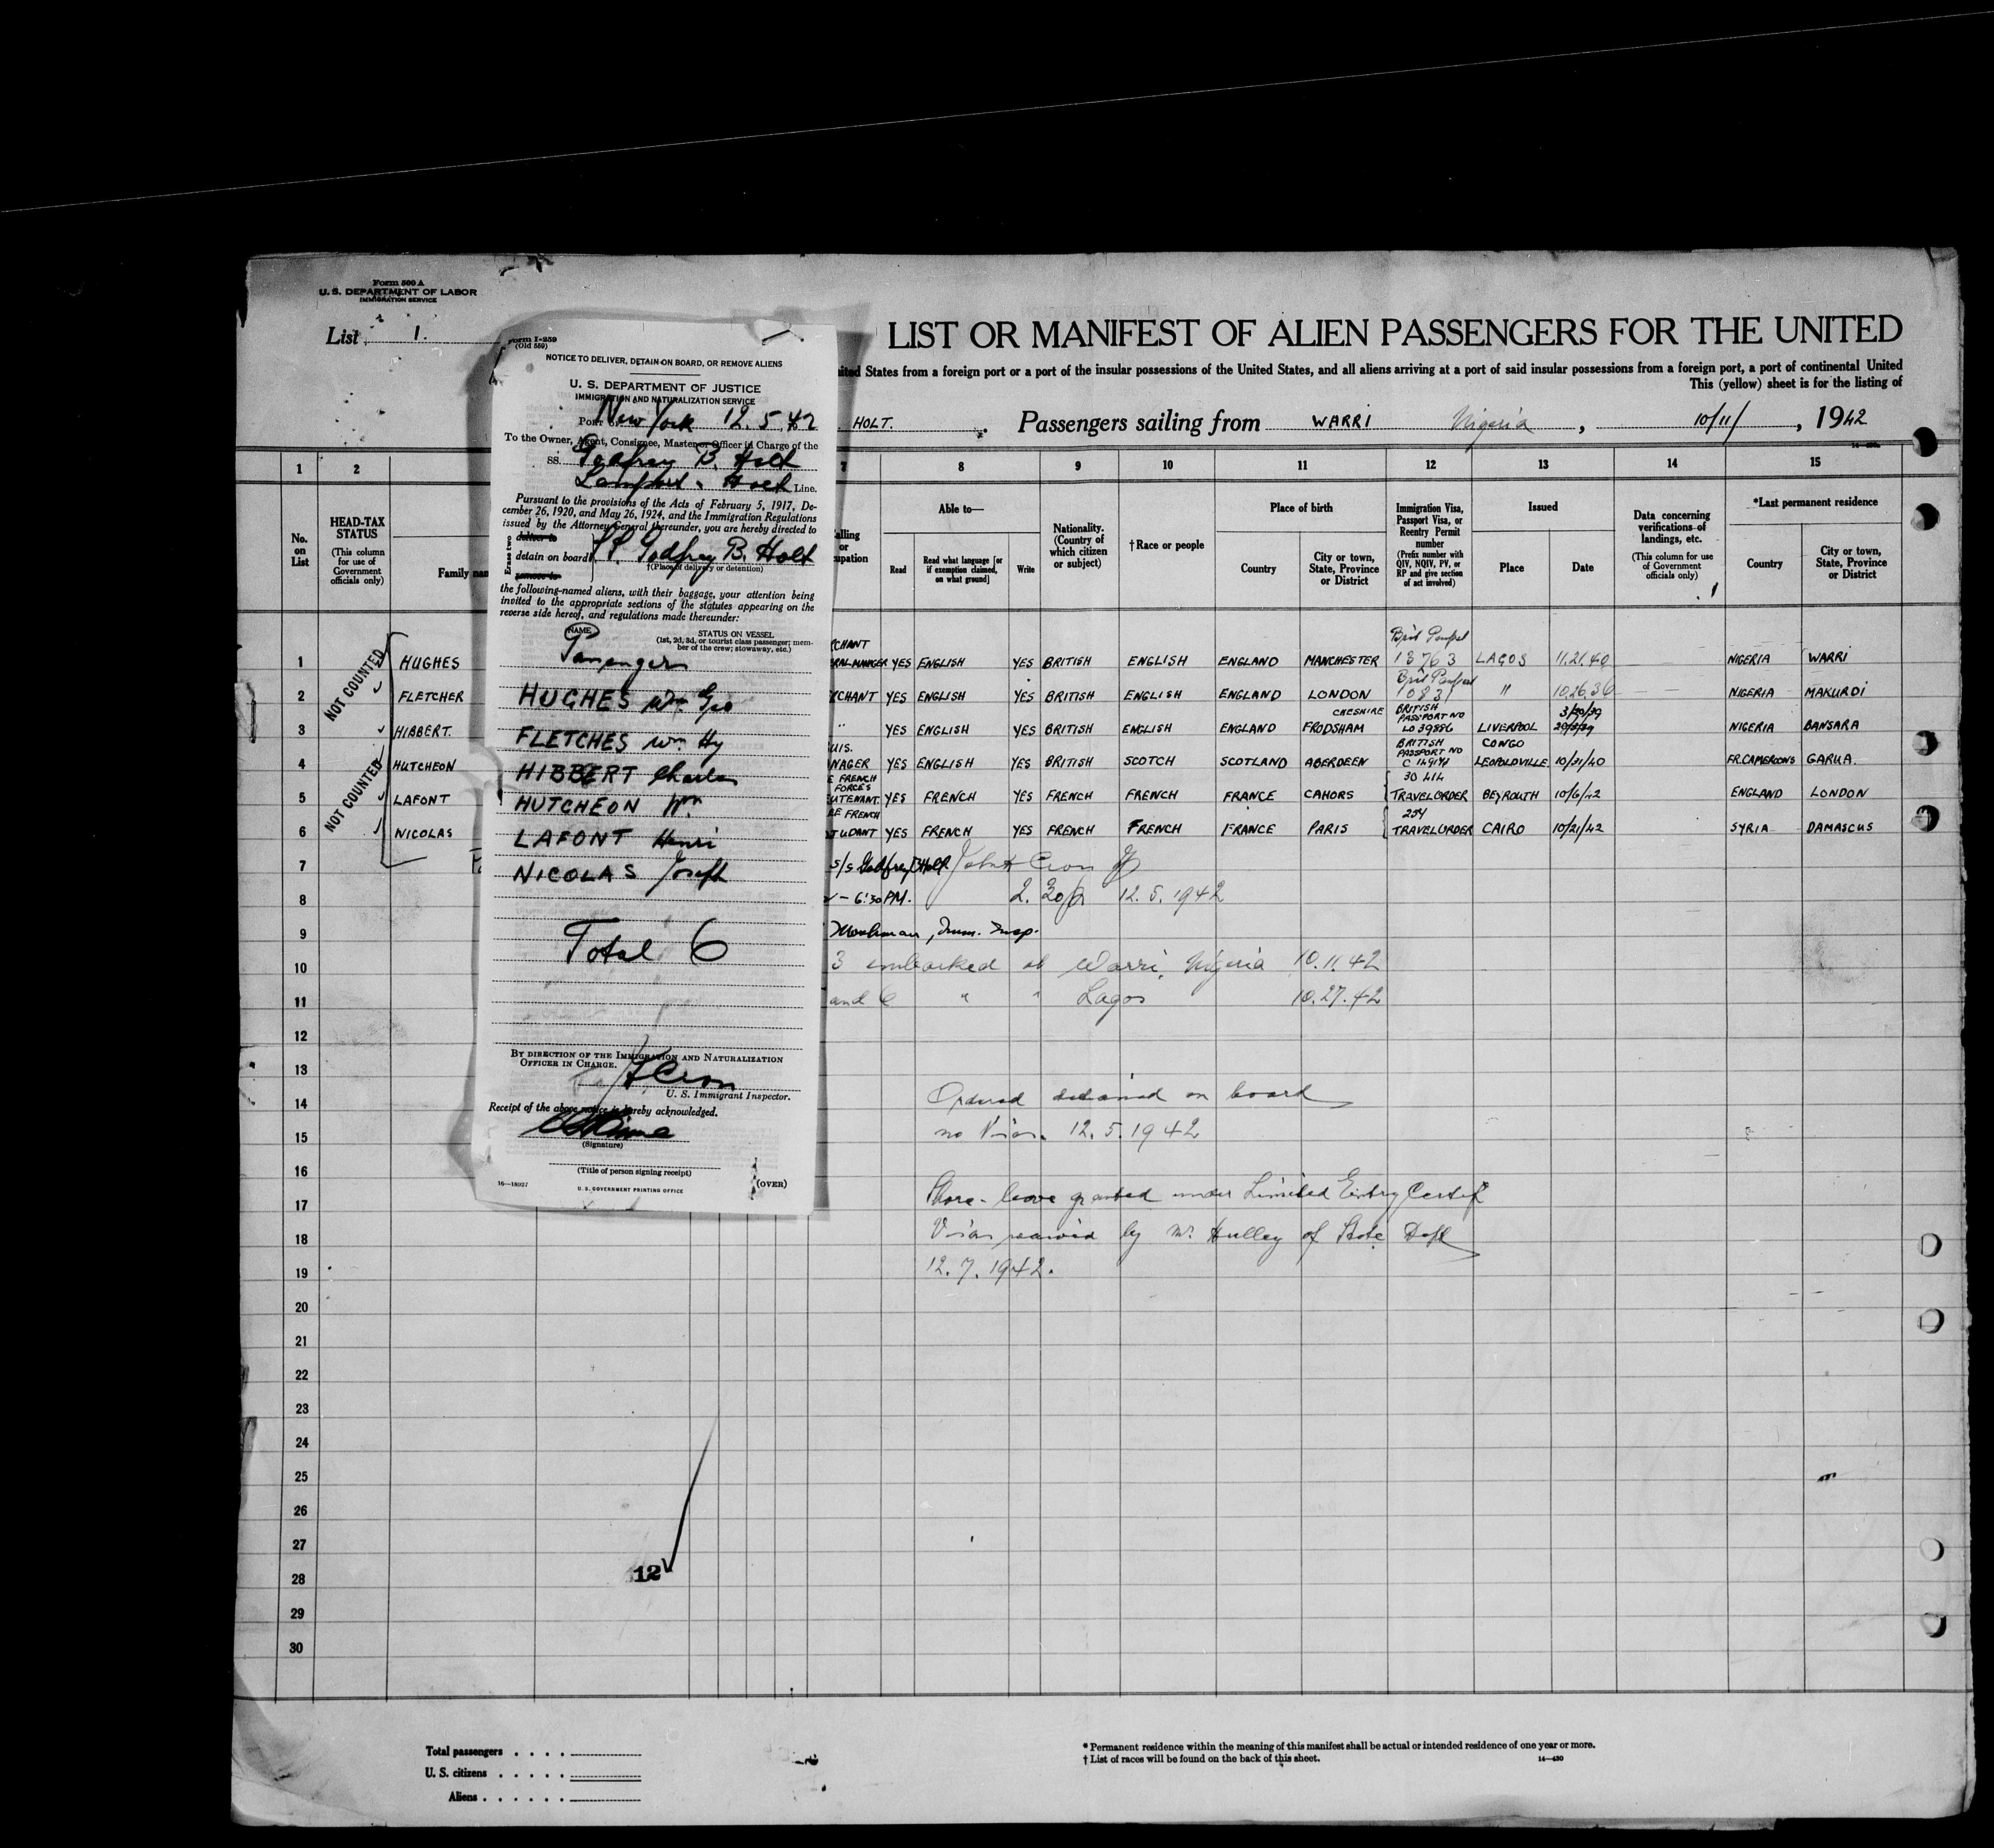 Form 500 A
U. S. DEPARTMENT OF LABOR
IMMIGRATION SERVICE
List 1.
LIST OR MANIFEST OF ALIEN PASSENGERS FOR THE UNITED
ited States from a foreign port or a port of the insular possessions of the United States, and all aliens arriving at a port of said insular possessions from a foreign port, a port of continental United
This (yellow) sheet is for the listing of
HOLT. Passengers sailing from WARRI Nigeria, 10/11/, 1942
Form I-259
(Old 559)
NOTICE TO DELIVER, DETAIN ON BOARD, OR REMOVE ALIENS
U. S. DEPARTMENT OF JUSTICE
IMMIGRATION AND NATURALIZATION SERVICE
Port of New York 12.5.42
To the Owner, Agent, Consignee, Master or Officer in Charge of the
SS. Godfrey B. Holt
Lamport & Holt Line.
Pursuant to the provisions of the Acts of February 5, 1917, De-
cember 26, 1920, and May 26, 1924, and the Immigration Regulations
issued by the Attorney General thereunder, you are hereby directed to
Erase two
deliver to
detain on board SS. Godfrey B. Holt
remove to
†(Place of delivery or detention)
the following-named aliens, with their baggage, your attention being
invited to the appropriate sections of the statutes appearing on the
reverse side hereof, and regulations made thereunder:
NAME STATUS ON VESSEL
(1st, 2d, 3d, or tourist class passenger; mem-
ber of the crew; stowaway, etc.)
Passengers
HUGHES Wm. Geo
FLETCHES Wm Hy
HIBBERT Charles
HUTCHEON Wm
LAFONT Henri
NICOLAS Joseph
Total 6
BY DIRECTION OF THE IMMIGRATION AND NATURALIZATION
OFFICER IN CHARGE.
H Cron
U. S. Immigrant Inspector.
Receipt of the above notice is hereby acknowledged.
(Signature)
(Title of person signing receipt)
16—18027 U. S. GOVERNMENT PRINTING OFFICE (OVER)
1 2 7 8 9 10 11 12 13 14 15
No. on List
HEAD-TAX STATUS
(This column for use of Government officials only)
Family nam
alling or cupation
Able to—
Read
Read what language [or if exemption claimed, on what ground]
Write
Nationality. (Country of which citizen or subject)
†Race or people
Place of birth
Country
City or town, State, Province or District
Immigration Visa, Passport Visa, or Reentry Permit number
(Prefix number with QIV, NQIV, PV, or RP and give section of act involved)
Issued
Place
Date
Data concerning verifications of landings, etc.
(This column for use of Government officials only)
*Last permanent residence
Country
City or town, State, Province or District
NOT COUNTED
NOT COUNTED
RCHANT
1 HUGHES ERAL MANAGER YES ENGLISH YES BRITISH ENGLISH ENGLAND MANCHESTER Brit Passpt 13763 LAGOS 11.21.40 NIGERIA WARRI
2 FLETCHER RCHANT YES ENGLISH YES BRITISH ENGLISH ENGLAND LONDON Brit Passpt 10831 " 10.26.36 NIGERIA MAKURDI
3 HIBBERT. " YES ENGLISH YES BRITISH ENGLISH ENGLAND CHESHIRE FRODSHAM BRITISH PASSPORT NO LO 39886 LIVERPOOL 3/29/39 29/3/39 NIGERIA BANSARA
4 HUTCHEON UIS. NAGER YES ENGLISH YES BRITISH SCOTCH SCOTLAND ABERDEEN BRITISH PASSPORT NO CONGO LEOPOLDVILLE 10/31/40 FR.CAMEROONS GARUA.
5 LAFONT E FRENCH FORCES UTENANT. YES FRENCH YES FRENCH FRENCH FRANCE CAHORS TRAVEL ORDER BEYROUTH 10/6/42 ENGLAND LONDON
6 NICOLAS EE FRENCH JUDANT YES FRENCH YES FRENCH FRENCH FRANCE PARIS 254 TRAVEL ORDER CAIRO 10/21/42 SYRIA DAMASCUS
7 S/S Godfrey B Holt John H Cron
8 – 6:30 PM. 2.30 p 12.5.1942
9 , Imm. Insp.
10 3 embarked at Warri, Nigeria 10.11.42
11 and 6 " " Lagos 10.27.42
12
13
14 Ordered detained on board
15 no Visa. 12.5.1942
16
17 Shore-leave granted under Limited Entry Certif
18 Visas waived by Mr Hulley of State Dept
19 12.7.1942.
20
21
22
23
24
25
26
27
28
12
29
30
Total passengers
U. S. citizens
Aliens
* Permanent residence within the meaning of this manifest shall be actual or intended residence of one year or more.
† List of races will be found on the back of this sheet. 14—430